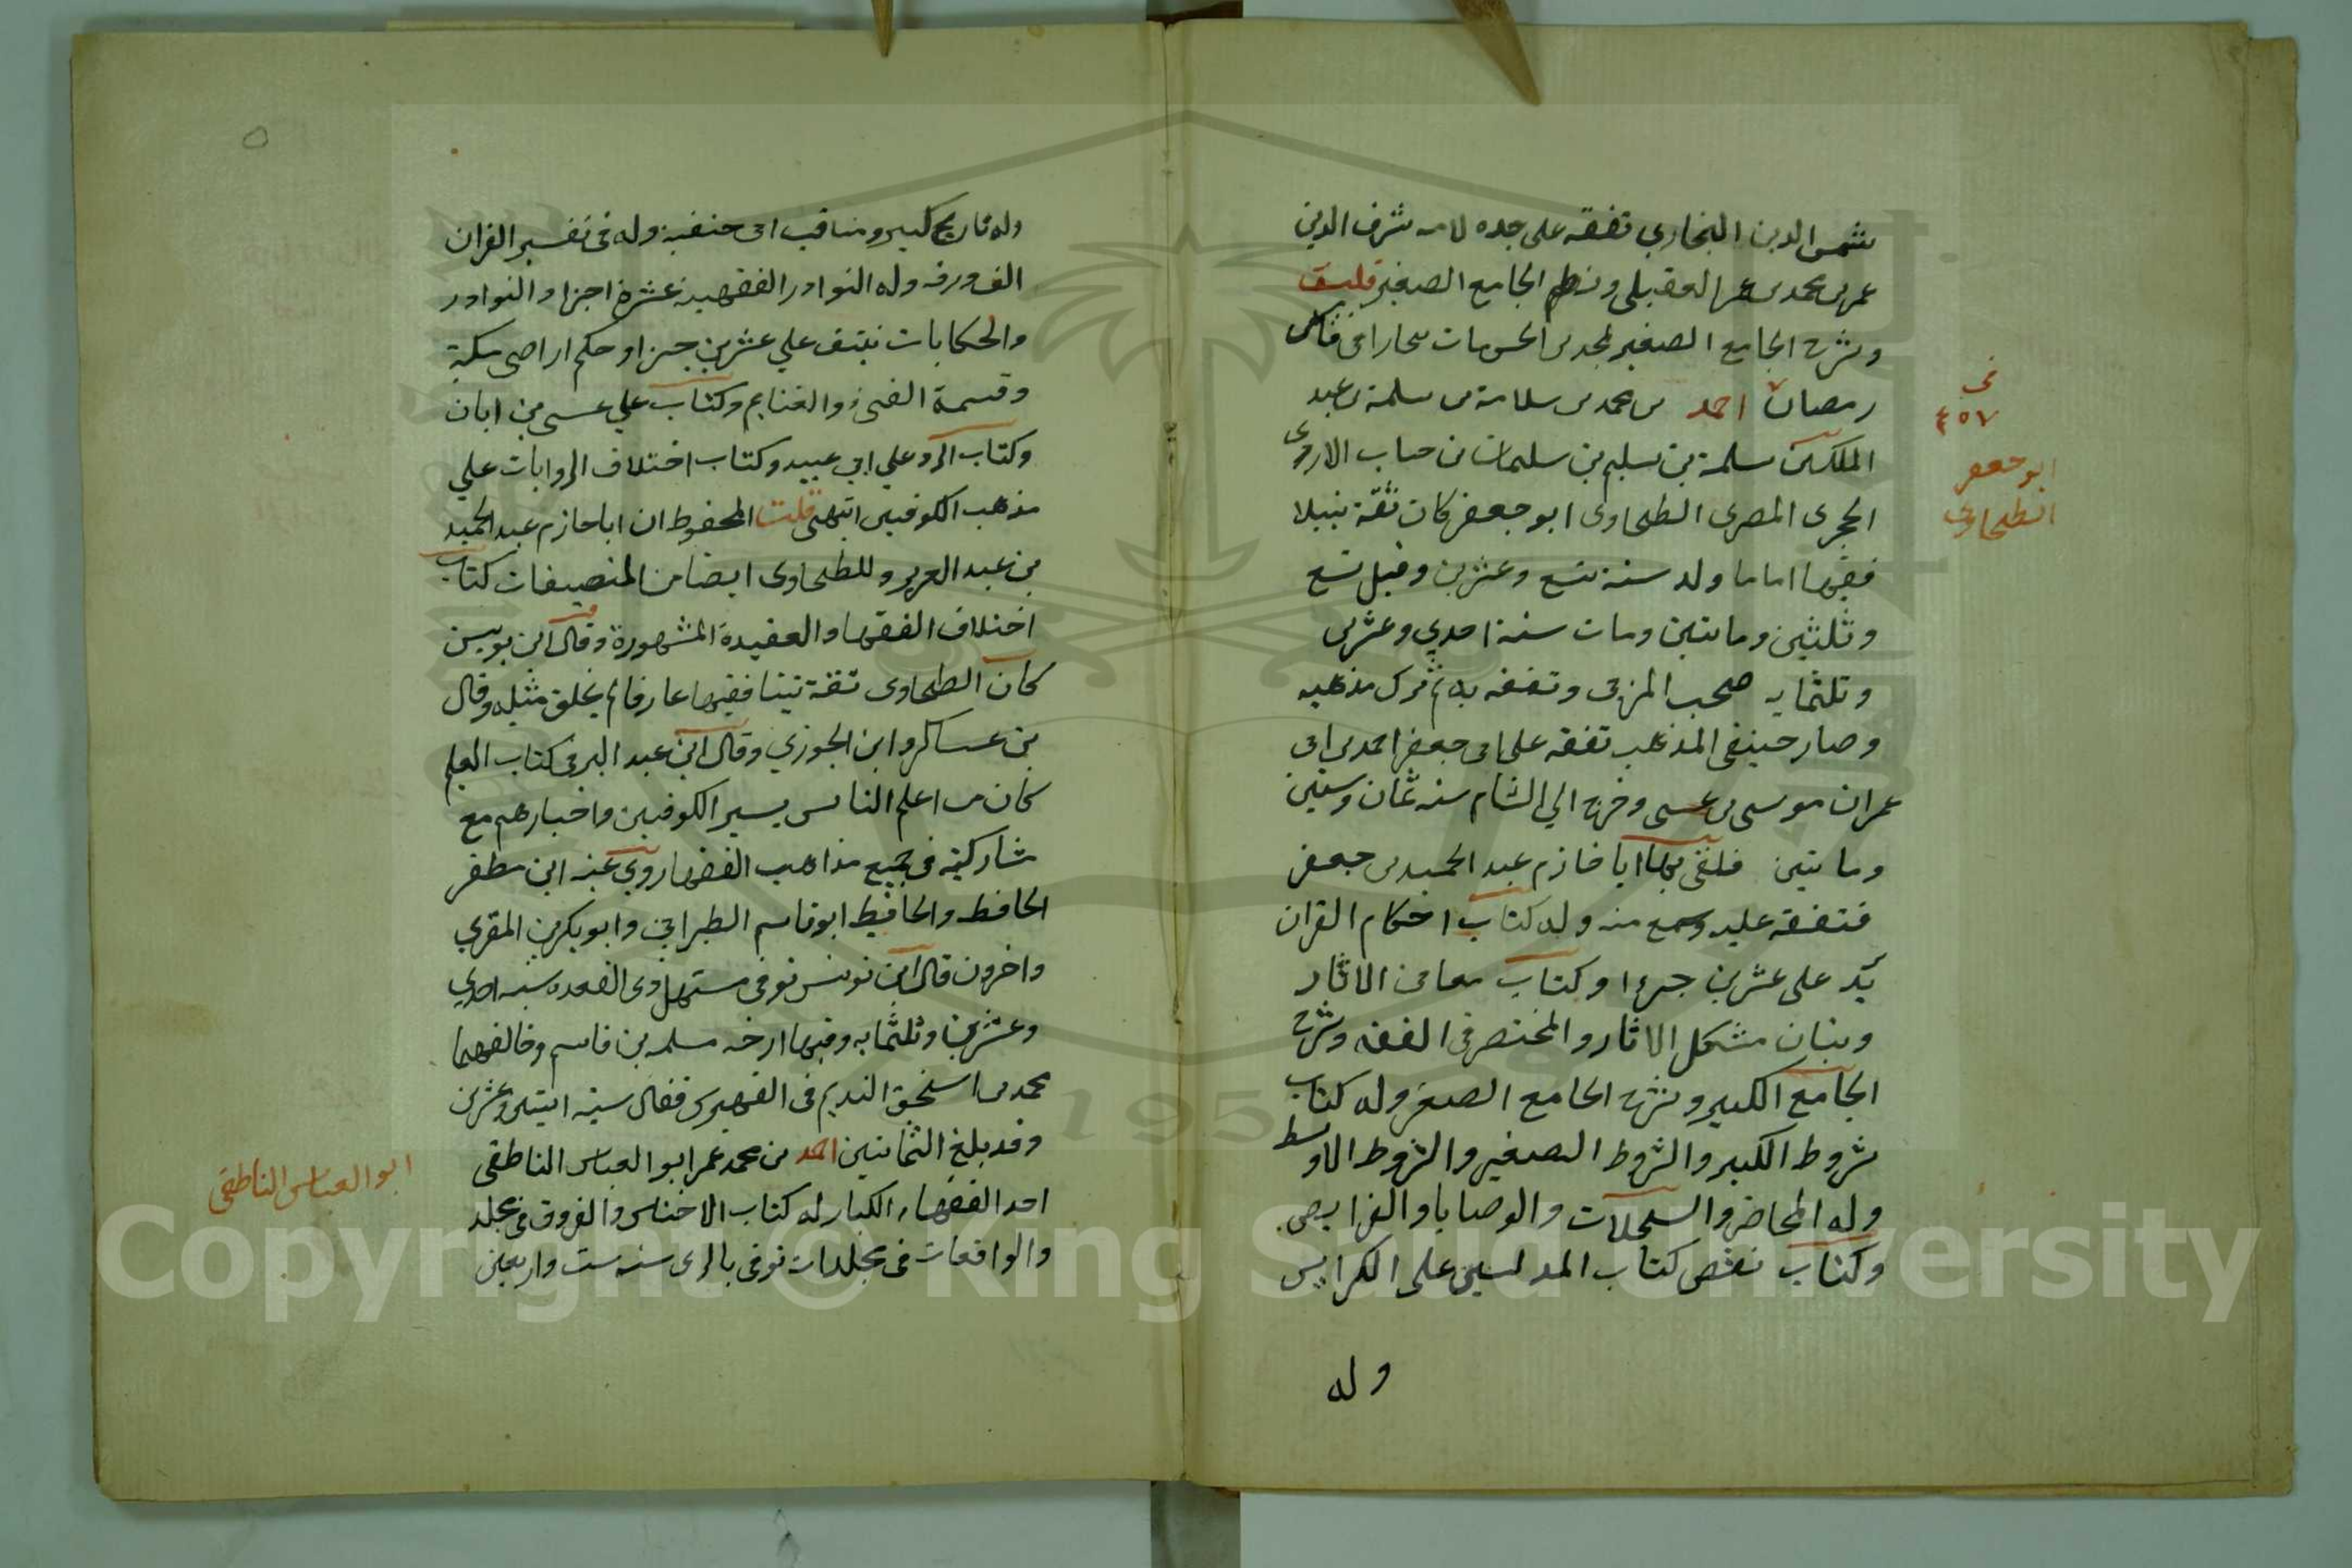 شمس الدين البخاري تفقه على جده لامه شرف الدين
عمر بن محمد بن عمر العقيلى ونظم الجامع الصغير قلت
وشرح الجامع الصغير لمحمد بن الحسن مات ببخارا فى
رمضان احمد بن محمد بن سلامة بن سلمة بن عبد
الملك بن سلمة بن سليم بن سليمان بن جناب الازدى
الحجرى المصرى الطحاوى ابو جعفر كان ثقة نبيلا
فقيها اماما ولد سنة تسع وعشرين وقيل تسع
وثلثين ومايتين ومات سنة احدي وعشرين
وثلثمايه صحب المزنى وتفقه به ثم ترك مذهبه
وصار حنيفى المذهب تفقه على ابى جعفر احمد بن ابى
عمران موسى بن عيسى وخرج الي الشام سنه ثمان وستين
ومايتين فلقى بها ابا خازم عبد الحميد بن جعفر
فتفقه عليه وسمع منه وله كتاب احكام القران
يزيد على عشرين جزءا وكتاب معانى الاثار
وبيان مشكل الاثار والمختصر فى الفقه وشرح
الجامع الكبير وشرح الجامع الصغير وله كتاب
شروط الكبير والشروط الصغير والشروط الاوسط
وله المحاضر والسجلات والوصايا والفرايض
وكتاب نقض كتاب المدلسين على الكرابيس
وله
فى
٤٥٧
ابو جعفر
الطحاوى
٥
وله تاريخ كبير ومناقب ابى حنفية وله فى تفسير القران
الف ورقه وله النوادر الفقهيه عشرة اجزا والنوادر
والحكايات نيتف علي عشرين جزا وحكم اراضى مكة
وقسمة الفىء والغنايم وكتاب علي عيسى بن ابان
وكتاب الرد علي ابي عبيد وكتاب اختلاف الروايات علي
مذهب الكوفيين انتهى قلت المحفوظ ان ابا حازم عبد الحميد
بن عبد العزيز وللطحاوى ايضا من المنصيفات كتاب
اختلاف الفقها والعقيدة المشهورة وقال ابن يونس
كان الطحاوى ثقة ثبتا فقيها عارفا لم يخلق مثله وقال
بن عساكر وابن الجوزي وقال ابن عبد البر فى كتاب العلم
كان من اعلم الناس بسير الكوفيين واخبارهم مع
مشاركته فى جميع مذاهب الفقها روي عنه ابن مظفر
الحافظ والحافيظ ابو قاسم الطبراني وابو بكر بن المقري
واخرون قال ابن يونس توفى مستهل ذى القعده سنه احدي
وعشرين وثلثمايه وفيها ارخه مسلمه بن قاسم وخالفهما
محمد بن اسحق النديم فى الفهرس فقال سنه اثنتين وعشرين
وقد بلغ الثمانين احمد بن محمد عمر ابو العباس الناطقى
احد الفقهاء الكبار له كتاب الاجناس والفروق فى مجلد
والواقعات فى مجلدات توفى بالرى سنه ست واربعين
ابو العباس الناطقى
Copyright © King Saud University
195